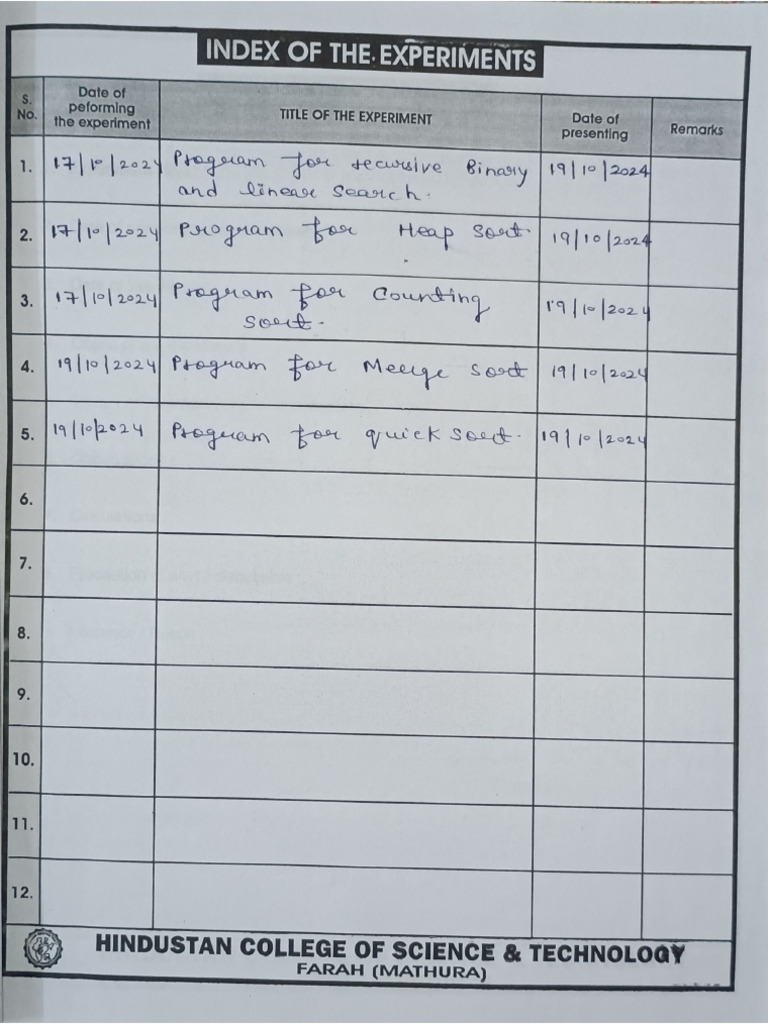 INDEX OF THE EXPERIMENTS
S. No. Date of peforming the experiment TITLE OF THE EXPERIMENT Date of presenting Remarks
1. 17/10/2024 Program for recursive Binary 19/10/2024
and linear search.
2. 17/10/2024 Program for Heap Sort. 19/10/2024
3. 17/10/2024 Program for Counting 19/10/2024
Sort.
4. 19/10/2024 Program for Merge Sort 19/10/2024
5. 19/10/2024 Program for quick Sort. 19/10/2024
6.
7.
8.
9.
10.
11.
12.
HINDUSTAN COLLEGE OF SCIENCE & TECHNOLOGY
FARAH (MATHURA)